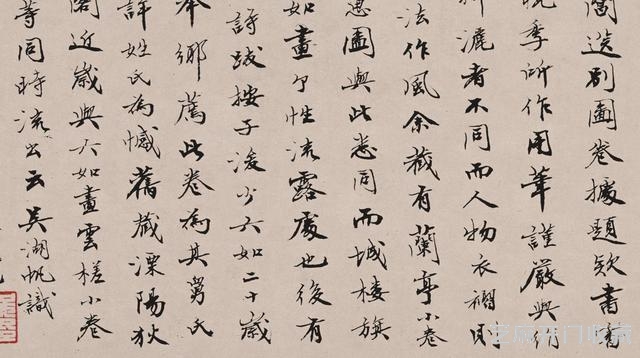 窩送別圖卷據題款書
晚季所作用筆謹嚴與
灑者不同而人物衣褶則
法作風余藏有蘭亭小卷
思圖與此卷同而城樓旗
如畫中性流露處也後有
詩跋按子浚少六如二十歲
奉鄉薦此卷為其舅氏
詳姓氏為憾舊藏溧陽狄
閣近歲與六如畫雲槎小卷
等同時流出云吳湖帆識